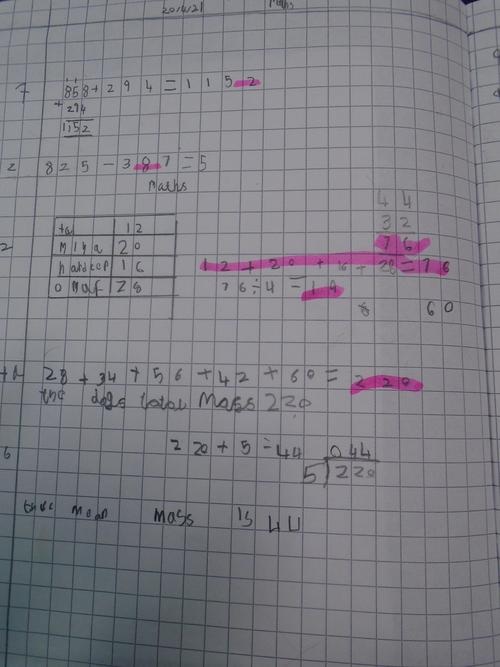 20/4/21 Maths
7 858+294=1152
+294
1152
2 825-387=5
Maths
44
12
32
20
76
16
12+20+16+28=76
0 28
76÷4=19
60
28+34+56+42+60=220
the dogs total Mass 220
220÷5=44
044
6
5 220
mean mass is 44